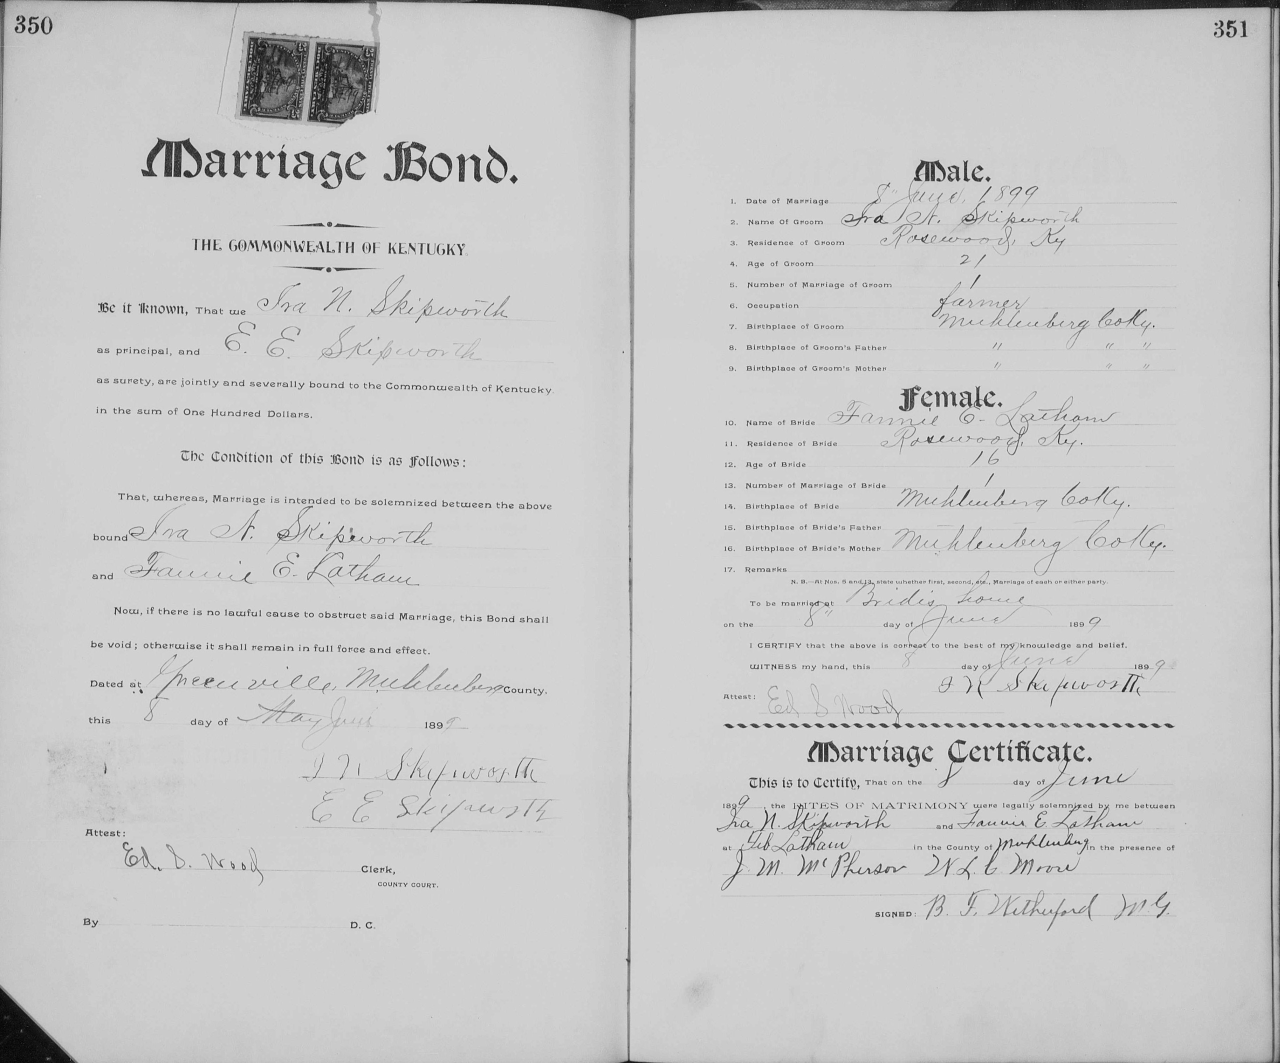 350
Marriage Bond.
THE COMMONWEALTH OF KENTUCKY.
Be it Known, That we Ira N. Skipworth
as principal, and E. E. Skipworth
as surety, are jointly and severally bound to the Commonwealth of Kentucky
in the sum of One Hundred Dollars.
The Condition of this Bond is as Follows:
That, whereas, Marriage is intended to be solemnized between the above
bound Ira N. Skipworth
and Fannie E. Latham
Now, if there is no lawful cause to obstruct said Marriage, this Bond shall
be void; otherwise it shall remain in full force and effect.
Dated at Greenville, Muhlenberg County,
this 8 day of May June 1899
I N Skipworth
E E Skipworth
Attest:
Ed. S. Wood Clerk,
COUNTY COURT.
By D. C.
351
Male.
1. Date of Marriage 8" June, 1899
2. Name Of Groom Ira N. Skipworth
3. Residence of Groom Rosewood, Ky
4. Age of Groom 21
5. Number of Marriage of Groom 1
6. Occupation farmer
7. Birthplace of Groom Muhlenberg Co Ky.
8. Birthplace of Groom's Father " " "
9. Birthplace of Groom's Mother " " "
Female.
10. Name of Bride Fannie E. Latham
11. Residence of Bride Rosewood, Ky.
12. Age of Bride 16
13. Number of Marriage of Bride 1
14. Birthplace of Bride Muhlenberg Co Ky.
15. Birthplace of Bride's Father
16. Birthplace of Bride's Mother Muhlenberg Co Ky.
17. Remarks
N. B.—At Nos. 5 and 13, state whether first, second, etc., Marriage of each or either party.
To be married at Bride's home
on the 8" day of June 1899
I CERTIFY that the above is correct to the best of my knowledge and belief.
WITNESS my hand, this 8 day of June 1899
I N Skipworth
Attest: Ed S Wood
Marriage Certificate.
This is to Certify, That on the 8 day of June
1899, the RITES OF MATRIMONY were legally solemnized by me between
Ira N. Skipworth and Fannie E Latham
at Geo Latham in the County of Muhlenberg in the presence of
J. M. McPherson W L C Moore
SIGNED: B. F. Witherford M.G.